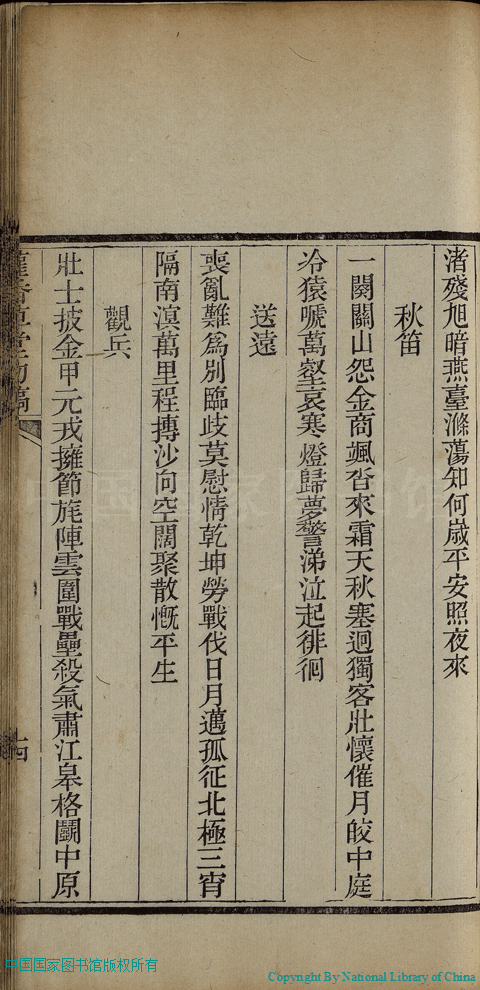 渚殘旭暗燕臺滌蕩知何歲平安照夜來
秋笛
一闋關山怨金商颯沓來霜天秋塞迥獨客壯懷催月皎中庭
冷猿嗁萬壑哀寒燈歸夢警涕泣起徘徊
送遠
喪亂難爲別臨歧莫慰情乾坤勞戰伐日月邁孤征北極三宵
隔南溟萬里程摶沙向空闊聚散慨平生
觀兵
壯士披金甲元戎擁節旄陣雲圍戰壘殺氣肅江皋格鬭中原
香草堂初稿
十四
中国国家图书馆版权所有
Copyright By National Library of China